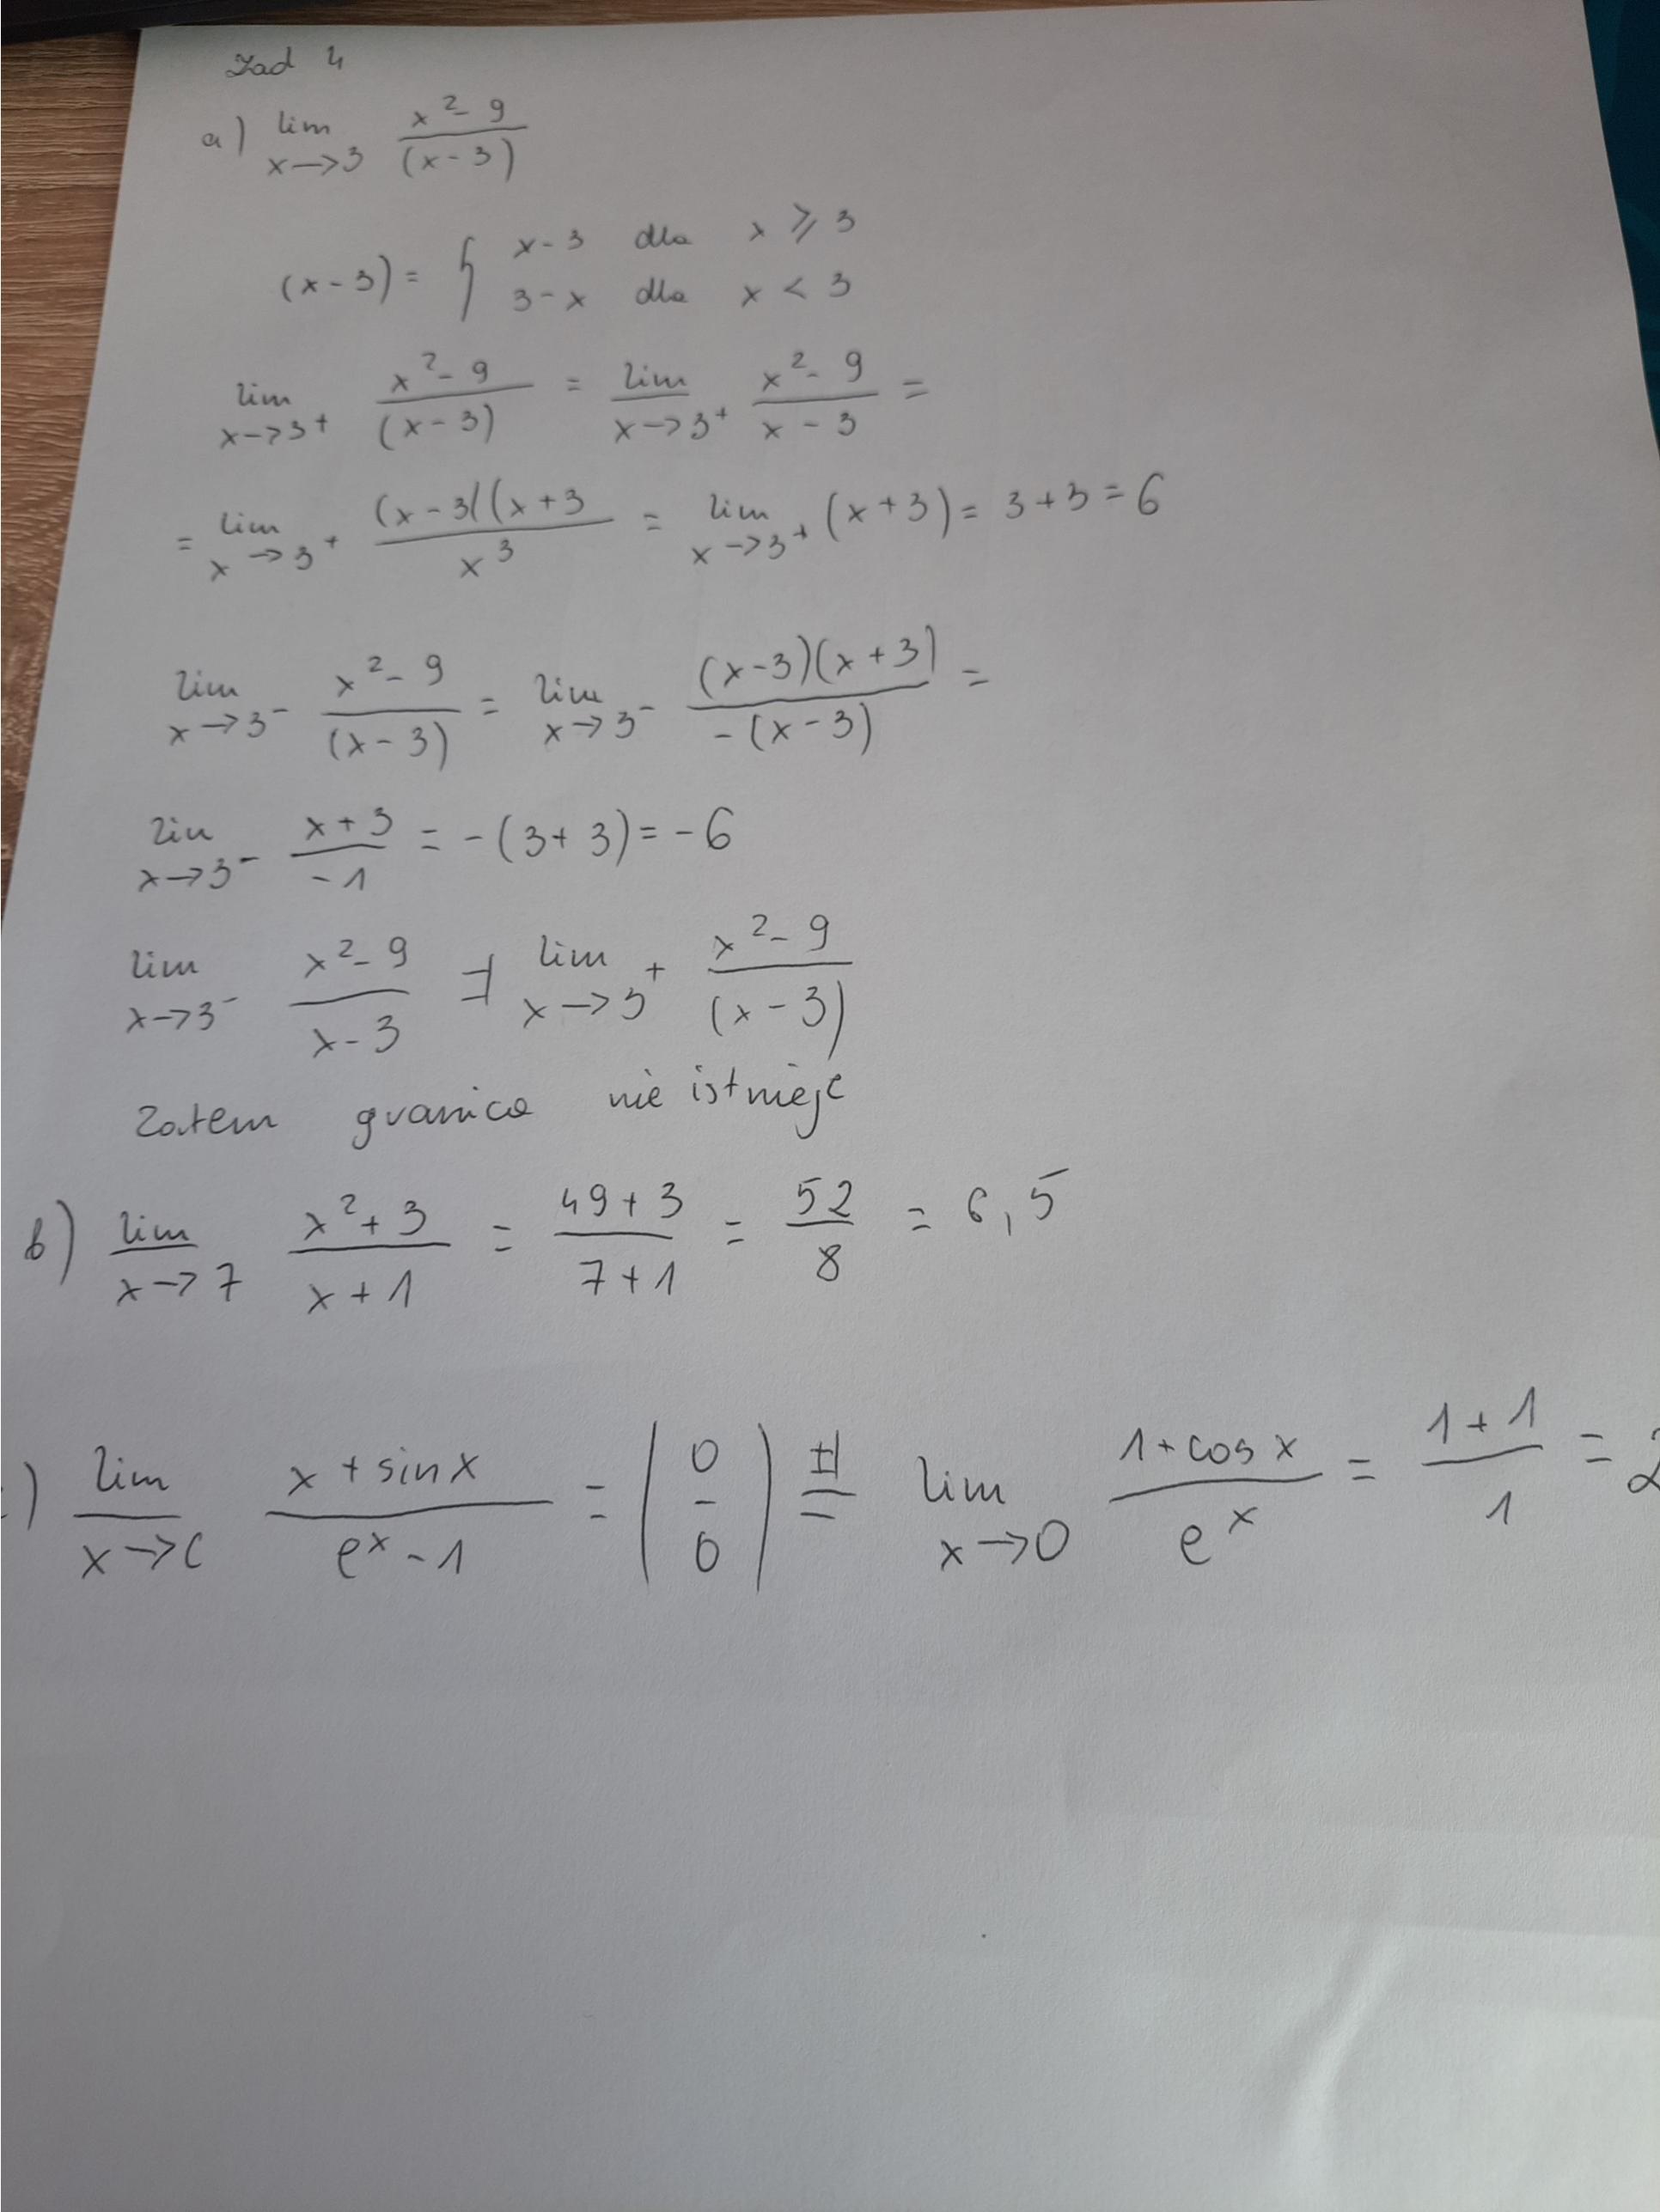 Zad 4
a) lim x→3 x²-9 / (x-3)
(x-3) = { x-3 dla x ⩾ 3
3-x dla x < 3
lim x→3⁺ x²-9 / (x-3) = lim x→3⁺ x²-9 / x-3 =
= lim x→3⁺ (x-3)(x+3 / x 3 = lim x→3⁺ (x+3) = 3+3 = 6
lim x→3⁻ x²-9 / (x-3) = lim x→3⁻ (x-3)(x+3) / -(x-3) =
lim x→3⁻ x+3 / -1 = -(3+3) = -6
lim x→3⁻ x²-9 / x-3 ≠ lim x→3⁺ x²-9 / (x-3)
Zatem granica nie istnieje
b) lim x→7 x²+3 / x+1 = 49+3 / 7+1 = 52 / 8 = 6,5
) lim x→0 x+sinx / eˣ-1 = (0 / 0) H= lim x→0 1+cosx / eˣ = 1+1 / 1 = 2